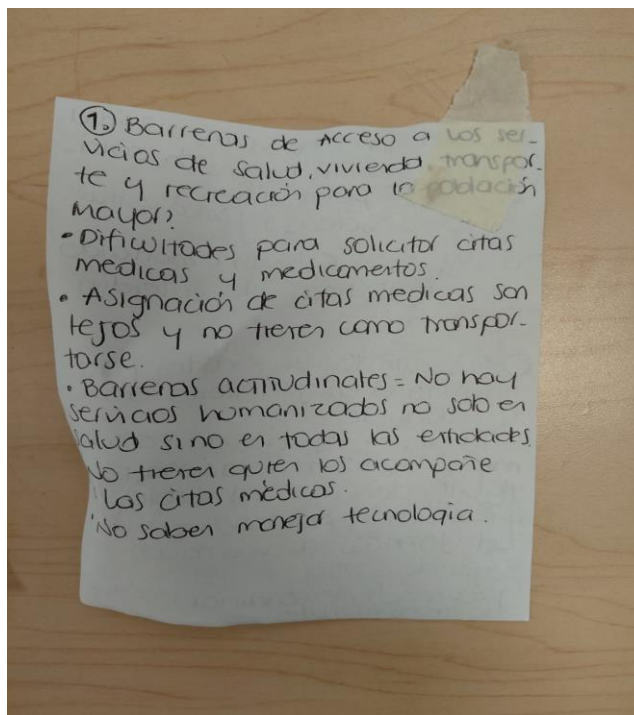 1. Barreras de Acceso a los ser-
vicios de salud, vivienda, transpor-
te y recreación para la población
Mayor?
• Dificultades para solicitar citas
medicas y medicamentos.
• Asignación de citas medicas son
lejos y no tienen como transpor-
tarse.
• Barreras actitudinales = No hay
servicios humanizados no solo en
salud sino en todas las entidades
No tienen quien los acompañe
Las citas médicas.
No saben manejar tecnologia.